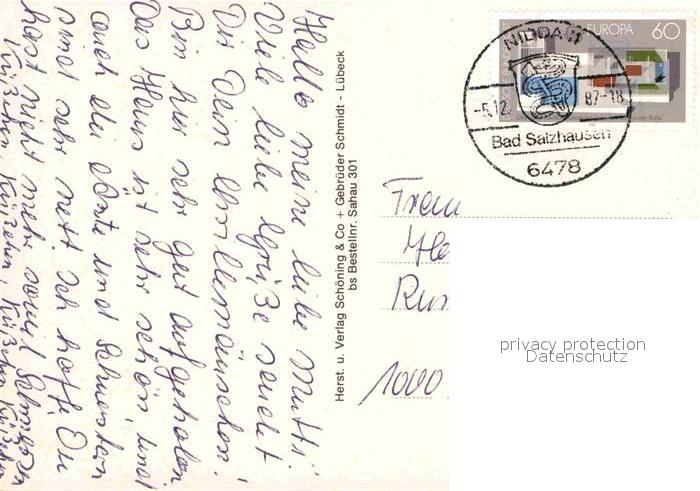 Hallo meine liebe Mutti!
Viele liebe Grüße sendet
Dir Dein
Bin hier sehr gut aufgehoben
Das Haus ist sehr schön, und
auch die Ärzte und Schwestern
sind sehr nett. Ich hoffe, Du
hast nicht mehr soviel Schmerzen
Küßchen, Küßchen, Küßchen, Küßchen
Herst. u. Verlag Schöning & Co + Gebrüder Schmidt - Lübeck
bs Bestellnr. Sahau 301
EUROPA 60
NIDDA 11
-5.12. 87-18
Bad Salzhausen
6478
Frau
1000
privacy protection
Datenschutz